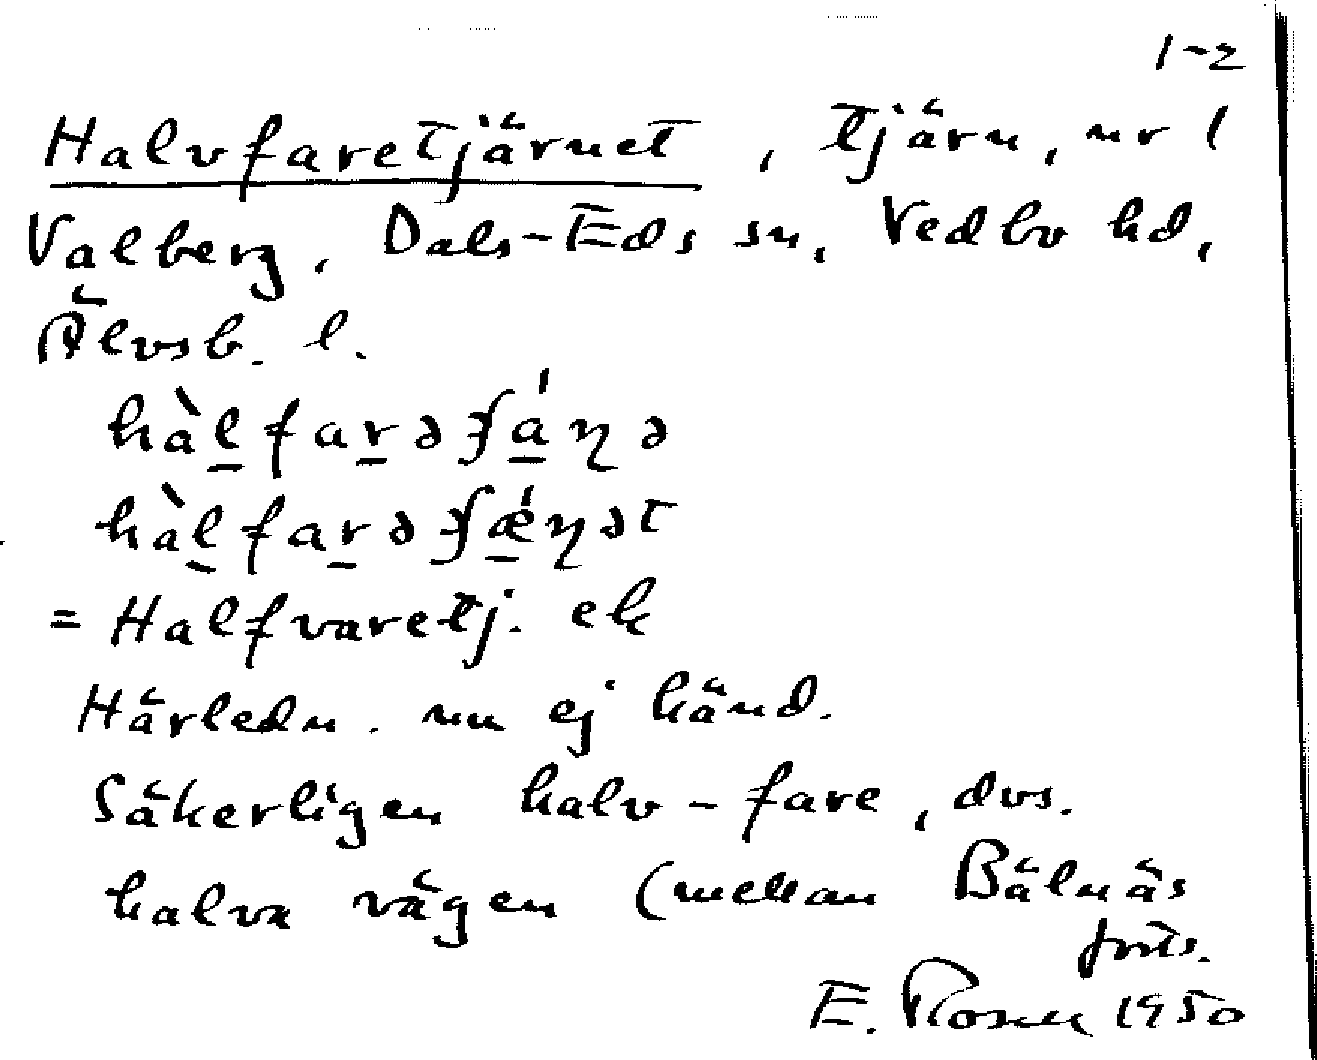 1-2
Halvfaretjärnet, tjärn, nr 1
Valberg, Dals-Eds sn, Vedbo hd,
Älvsb. l.
= Halfvaretj. ek
Härledn. nu ej känd.
Säkerligen halv-fare, dvs.
halva vägen (mellan Bälnäs
forts.
E. Rosen 1950